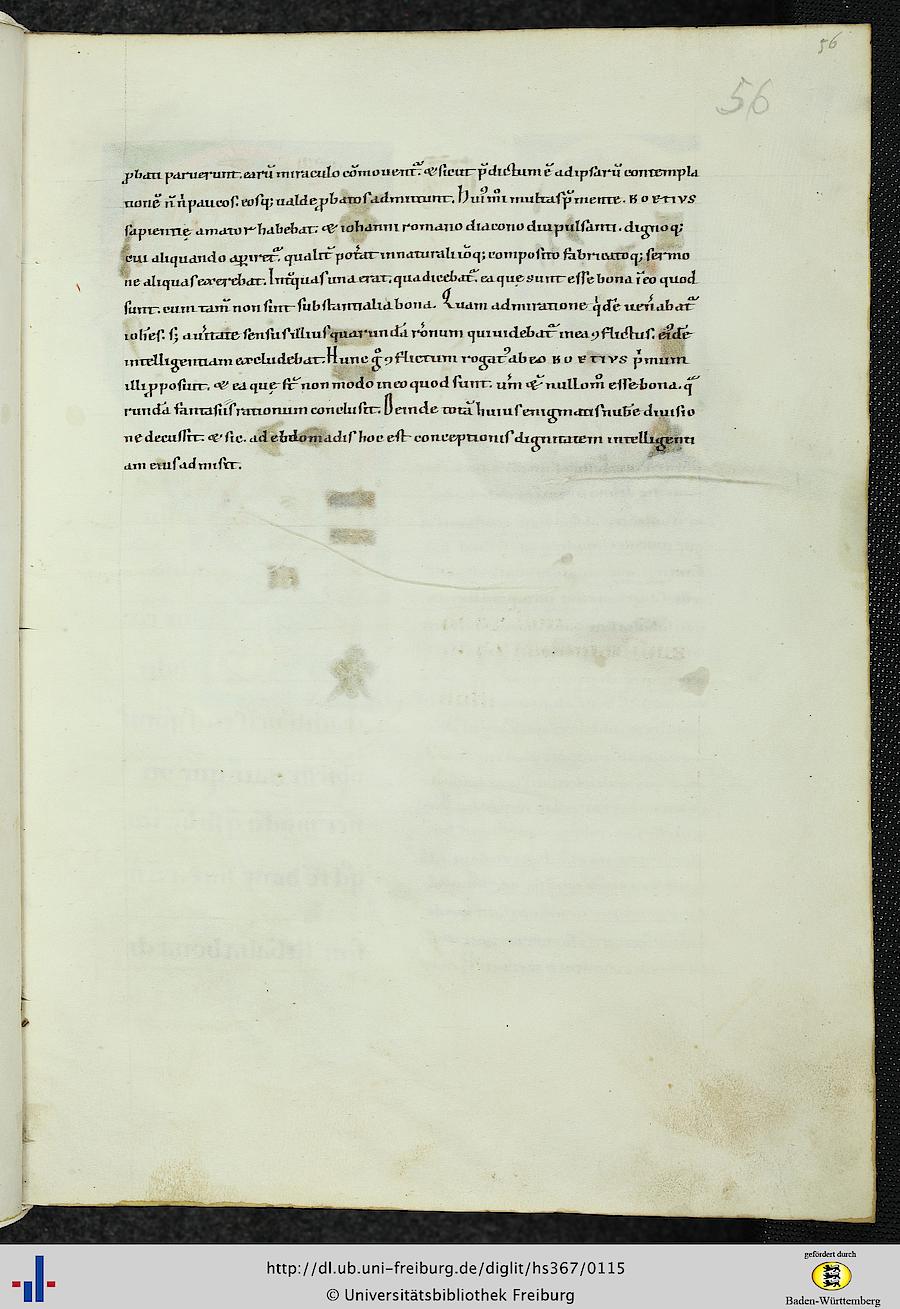 56
56
ꝓbati paruerunt. earū miraculo cōmouent᷑. & sicut p̄dictum ē ad ipsarū contempla
tionē n̄ n̍ paucos. eosq; ualde ꝓbatos admittunt. Hui᷒ m̍ multas sp̄ mente. BOETIVS
sapientię amator habebat. & iohanni romano diacono diu pulsanti. dignoq;
cui aliquando apiret᷑. qualit͛ pot͛at in naturali q; composito fabricatoq; sermo
ne aliquas exerebat. Int͛ quas una erat. qua dicebat᷑. ea quę sunt esse bona ī eo quod
sunt. cum tam̄ non sint substantialia bona. Quam admiratione q̍dē uen͛abat᷑
ioh̄es. s; auc̄tate sensus illius quarundā rōnum qui uidebat᷑ mea ꝯflictus. ei᷒dē
intelligentiam excludebat. Hunc g̊ ꝯflictum rogat᷒ ab eo BOETIVS p̍mum
illi ꝓposuit. & ea quę s̄t non modo in eo quod sunt. ur̄m &̄ nullom̊ esse bona. q̄
rundā fantasiis rationum conclusit. Deinde totā huius enigmatis nubē diuisio
ne decussit. & sic. ad ebdomadis hoc est conceptionis dignitatem intelligenti
am eius admisit.
http://dl.ub.uni-freiburg.de/diglit/hs367/0115
© Universitätsbibliothek Freiburg
gefördert durch
Baden-Württemberg